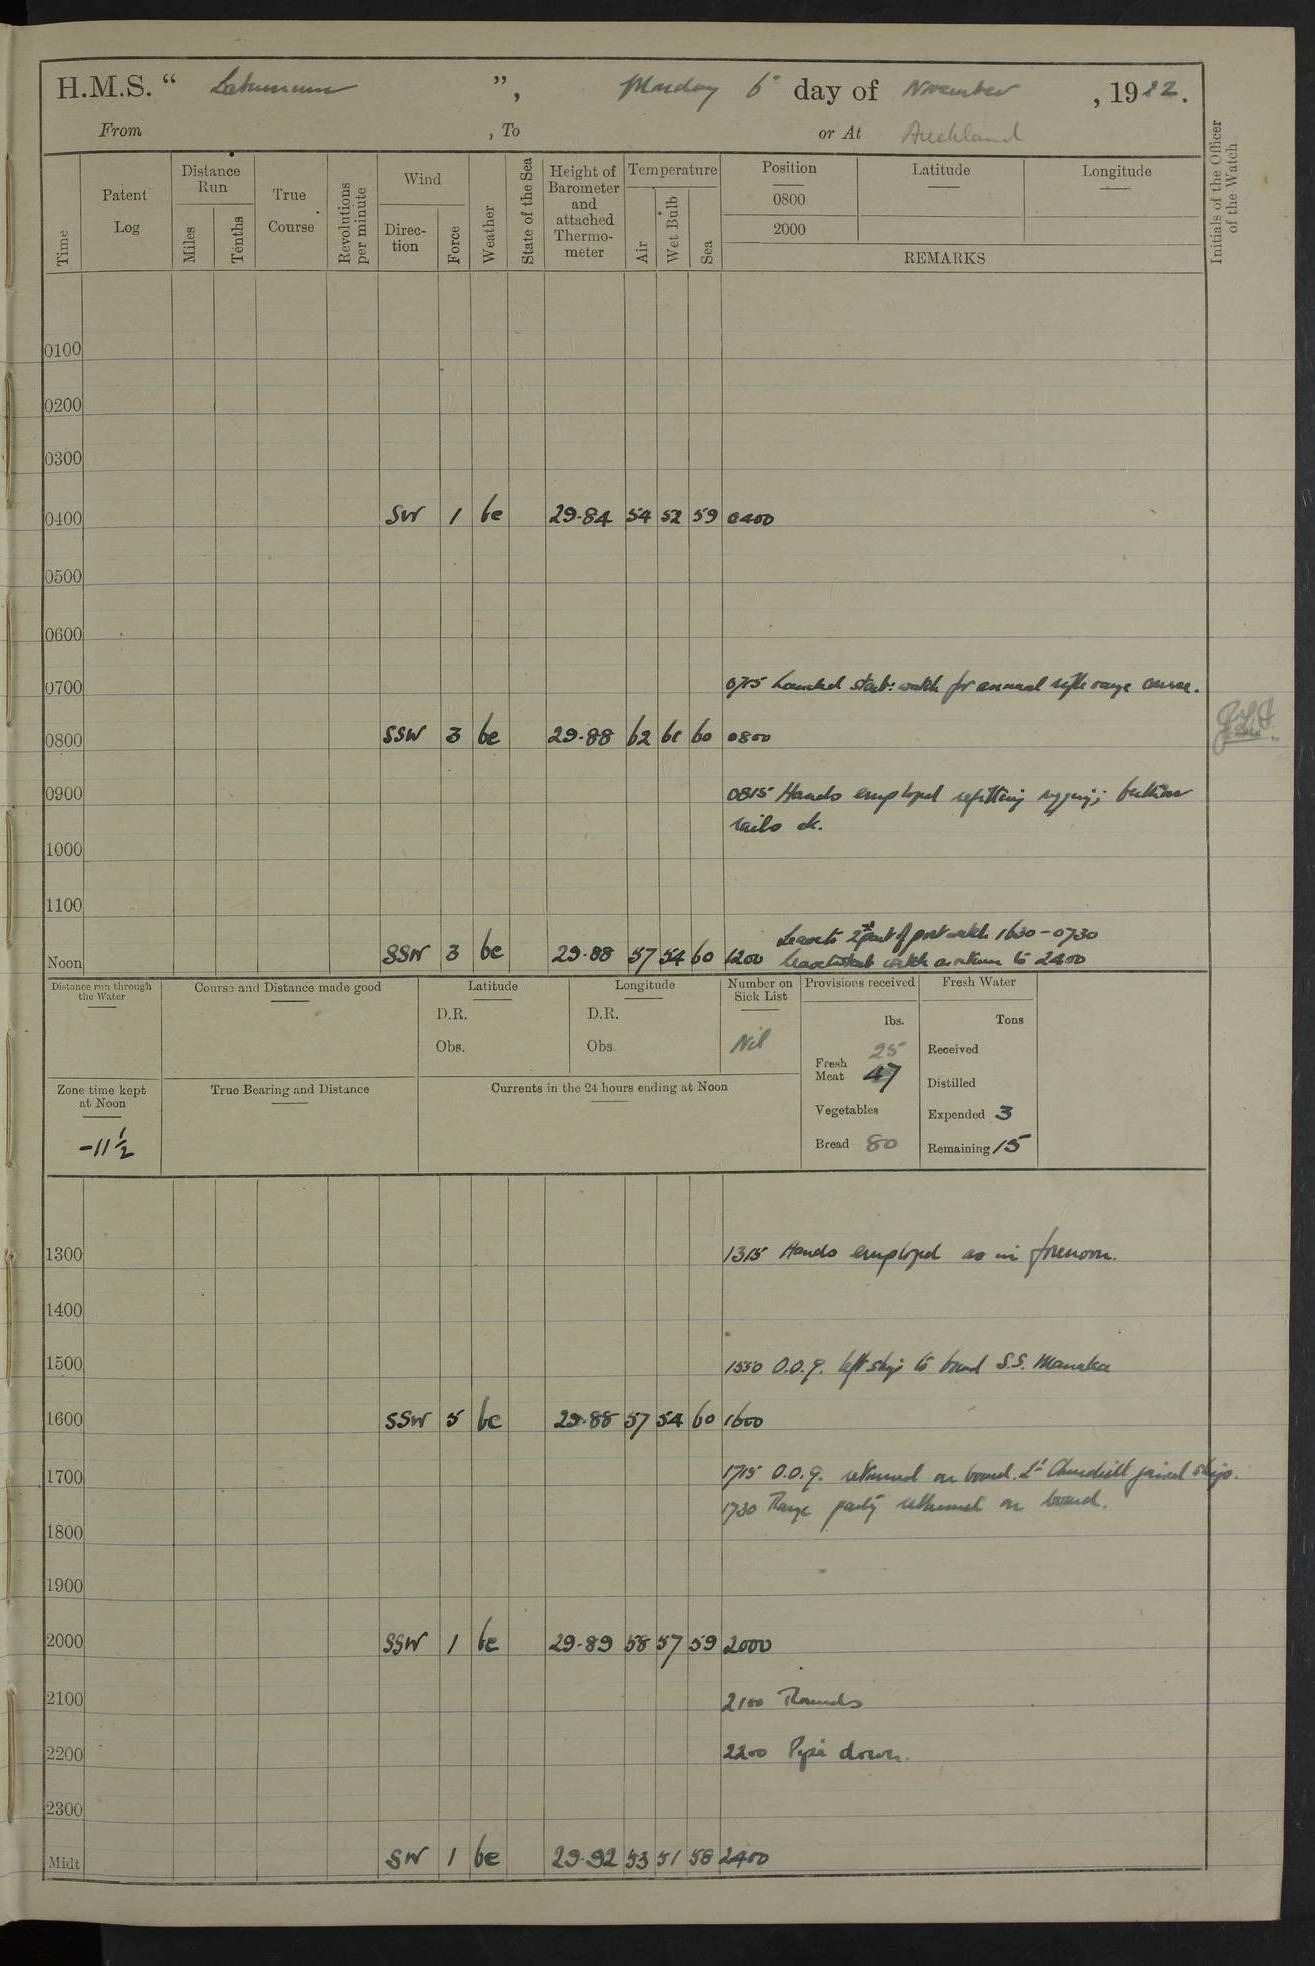 H.M.S. “ Laburnum ”, Monday 6th day of November, 1922.
From , To or At Auckland
Time
Patent Log
Distance Run
Miles
Tenths
True Course
Revolutions per minute
Wind
Direction
Force
Weather
State of the Sea
Height of Barometer and attached Thermometer
Temperature
Air
Wet Bulb
Sea
Position
0800
2000
Latitude
Longitude
REMARKS
Initials of the Officer of the Watch
0100
0200
0300
0400 SW 1 bc 29.84 54 52 59 0400
0500
0600
0700 0715 Landed starb: watch for annual rifle range course.
0800 SSW 3 bc 29.88 62 60 0800
0900 0815 Hands employed refitting rigging;
rails etc.
1000
1100
Leave to 2nd part of port watch 1630-0730
Noon SSW 3 bc 29.88 57 54 60 1200 watch on return to 2400
Distance run through the Water
Course and Distance made good
Latitude
D.R.
Obs.
Longitude
D.R.
Obs.
Number on Sick List
Nil
Provisions received
lbs.
Fresh Meat 25 47
Vegetables
Bread 80
Fresh Water
Tons
Received
Distilled
Expended 3
Remaining 15
Zone time kept at Noon
-11½
True Bearing and Distance
Currents in the 24 hours ending at Noon
1300 1315 Hands employed as in forenoon.
1400
1500 1530 O.O.G. left ship to board S.S. Manuka
1600 SSW 5 bc 29.88 57 54 60 1600
1700 1715 O.O.G. returned on board. Lt Churchill joined ship.
1730 Range party returned on board.
1800
1900
2000 SSW 1 bc 29.89 58 57 59 2000
2100 2100 Rounds
2200 2200 Pipe down.
2300
Midt SW 1 bc 29.92 53 51 58 2400